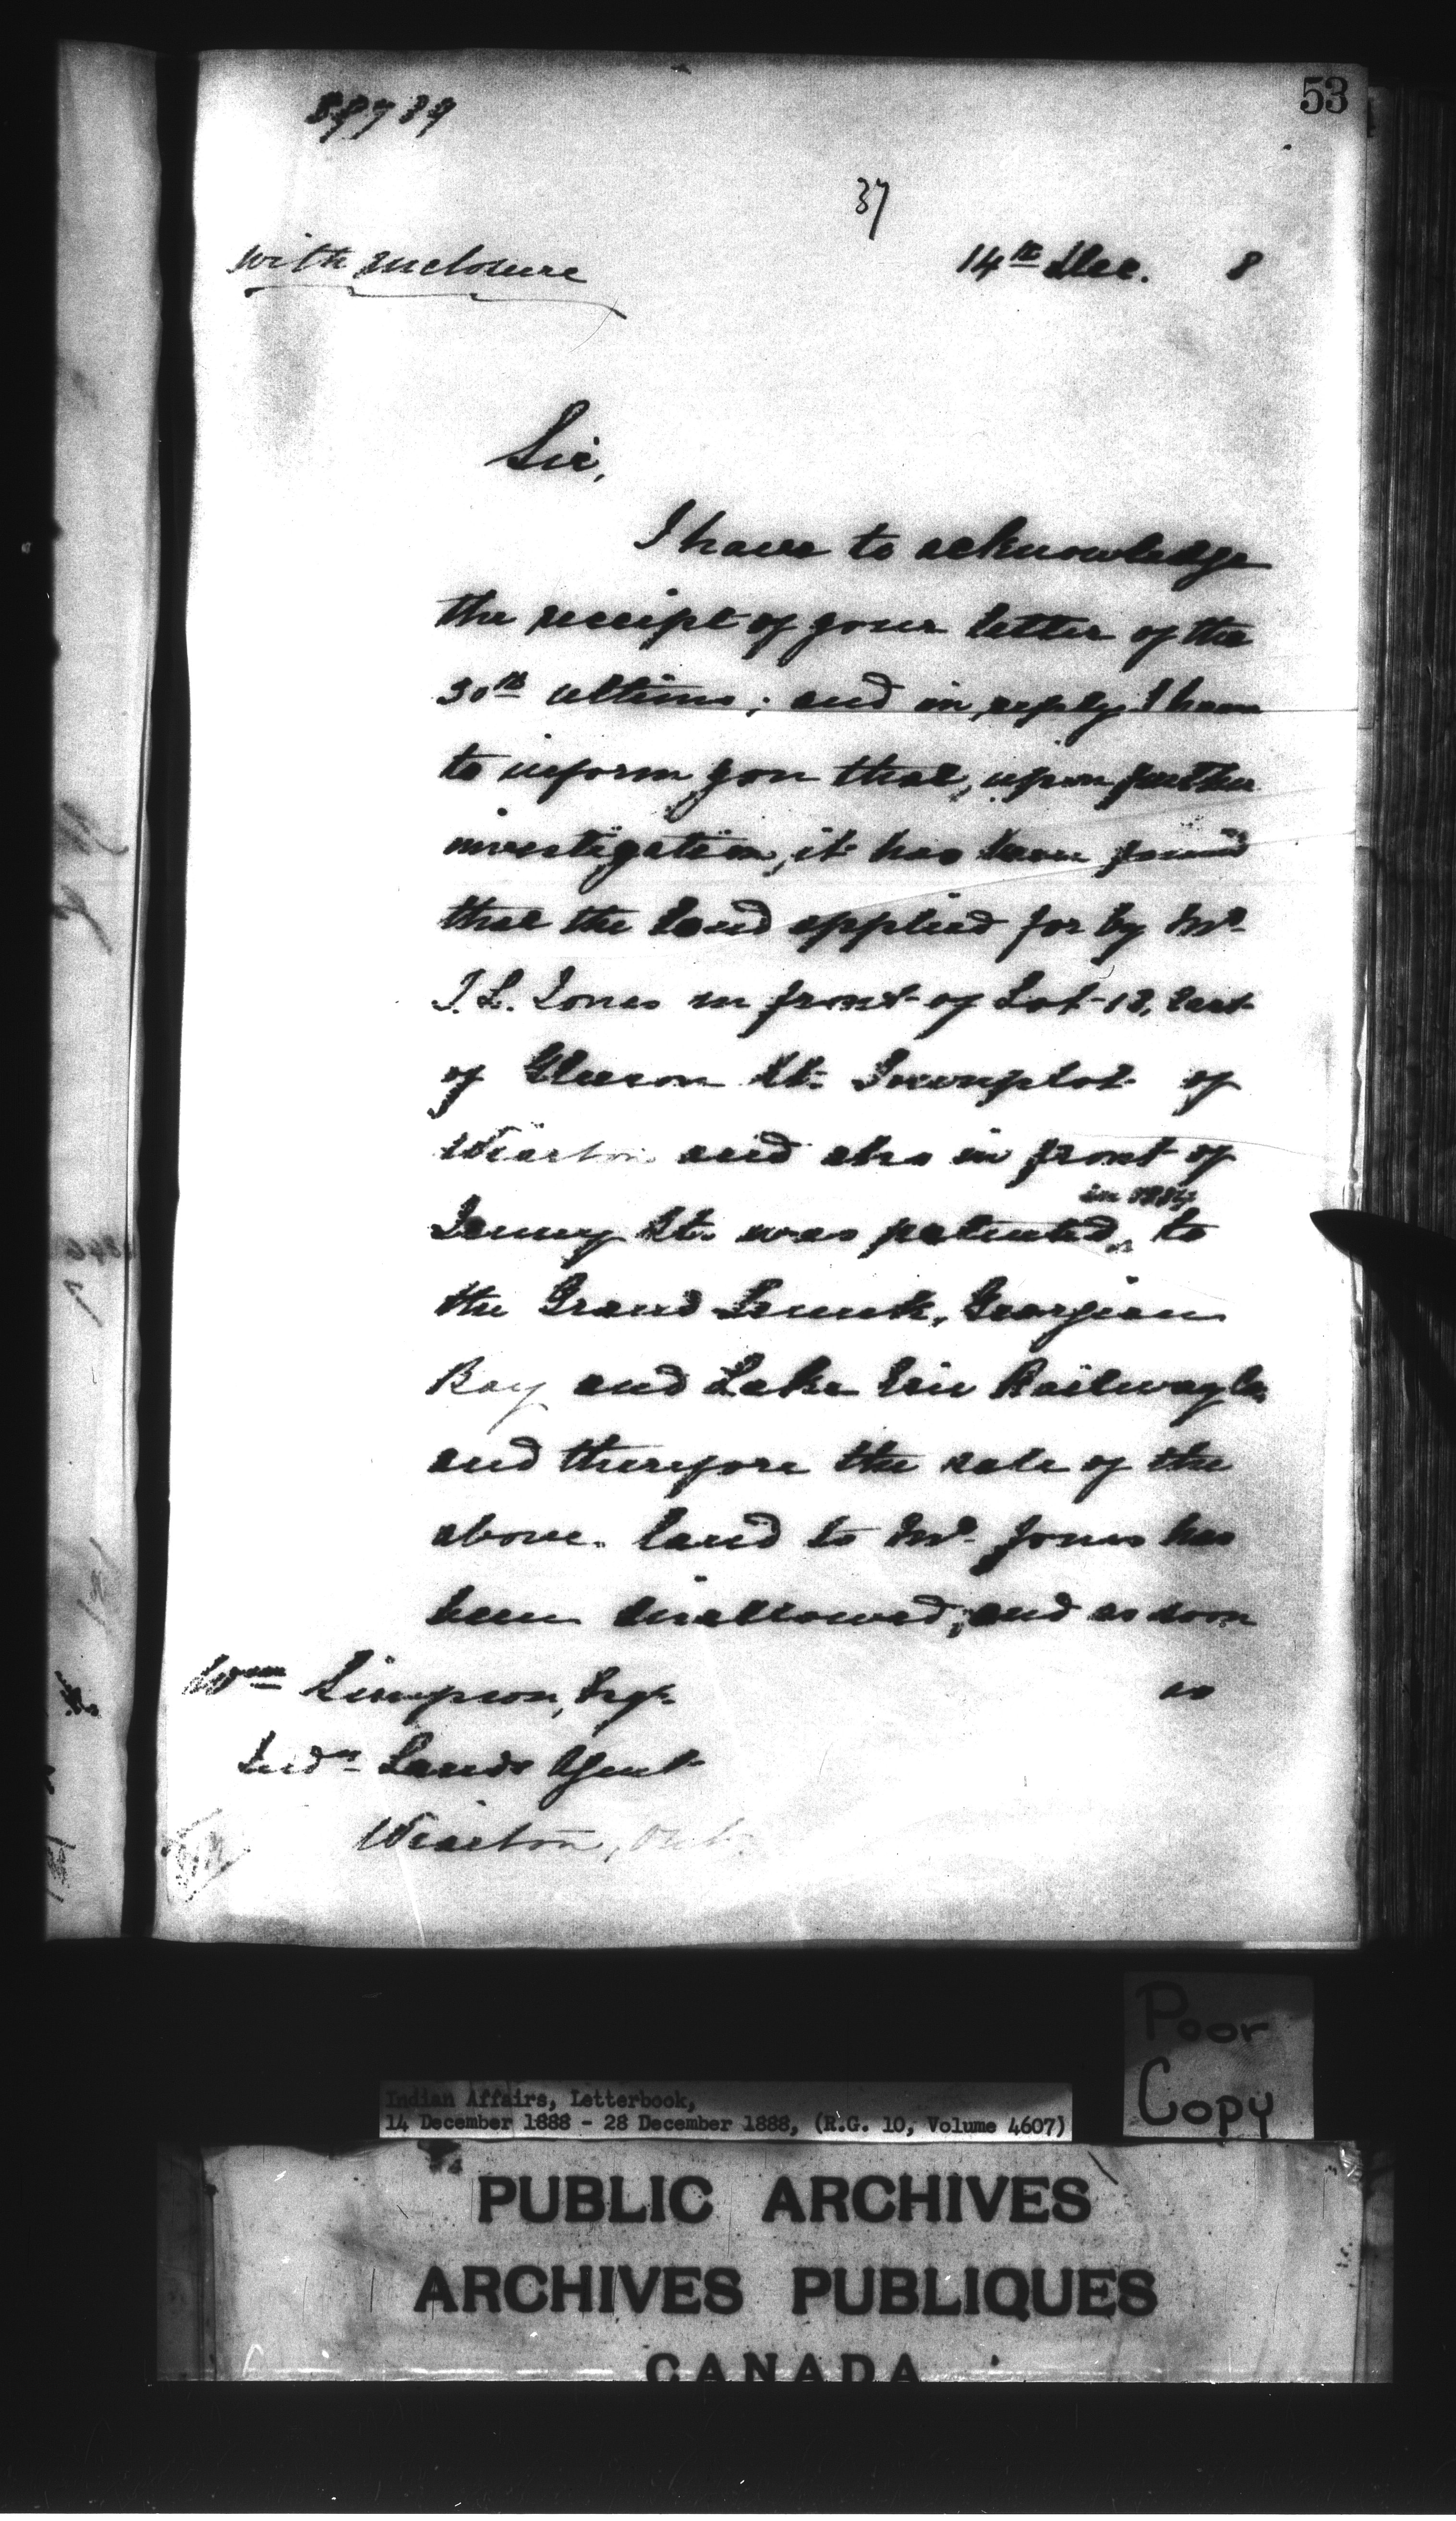 53
37
with enclosure
14th Dec. 8
Sir,
I have to acknowledge
the receipt of your letter of the
30th ultimo; and in reply I have
to inform you that, upon further
investigation, it has been found
that the land applied for by Mr
J. L. Jones in front of Lot 12, East
of St. Townplot of
Wiarton and also in front of
Jenny St. was patented to
the Grand Trunk, Georgian
Bay and Lake Erie Railway Co.
and therefore the sale of the
above land to Mr Jones has
been disallowed; and as soon
as
Wm Simpson, Esq.
Indn Lands Agent
Wiarton, Ont.
Poor
Copy
Indian Affairs, Letterbook,
14 December 1888 - 28 December 1888, (R.G. 10, Volume 4607)
PUBLIC ARCHIVES
ARCHIVES PUBLIQUES
CANADA